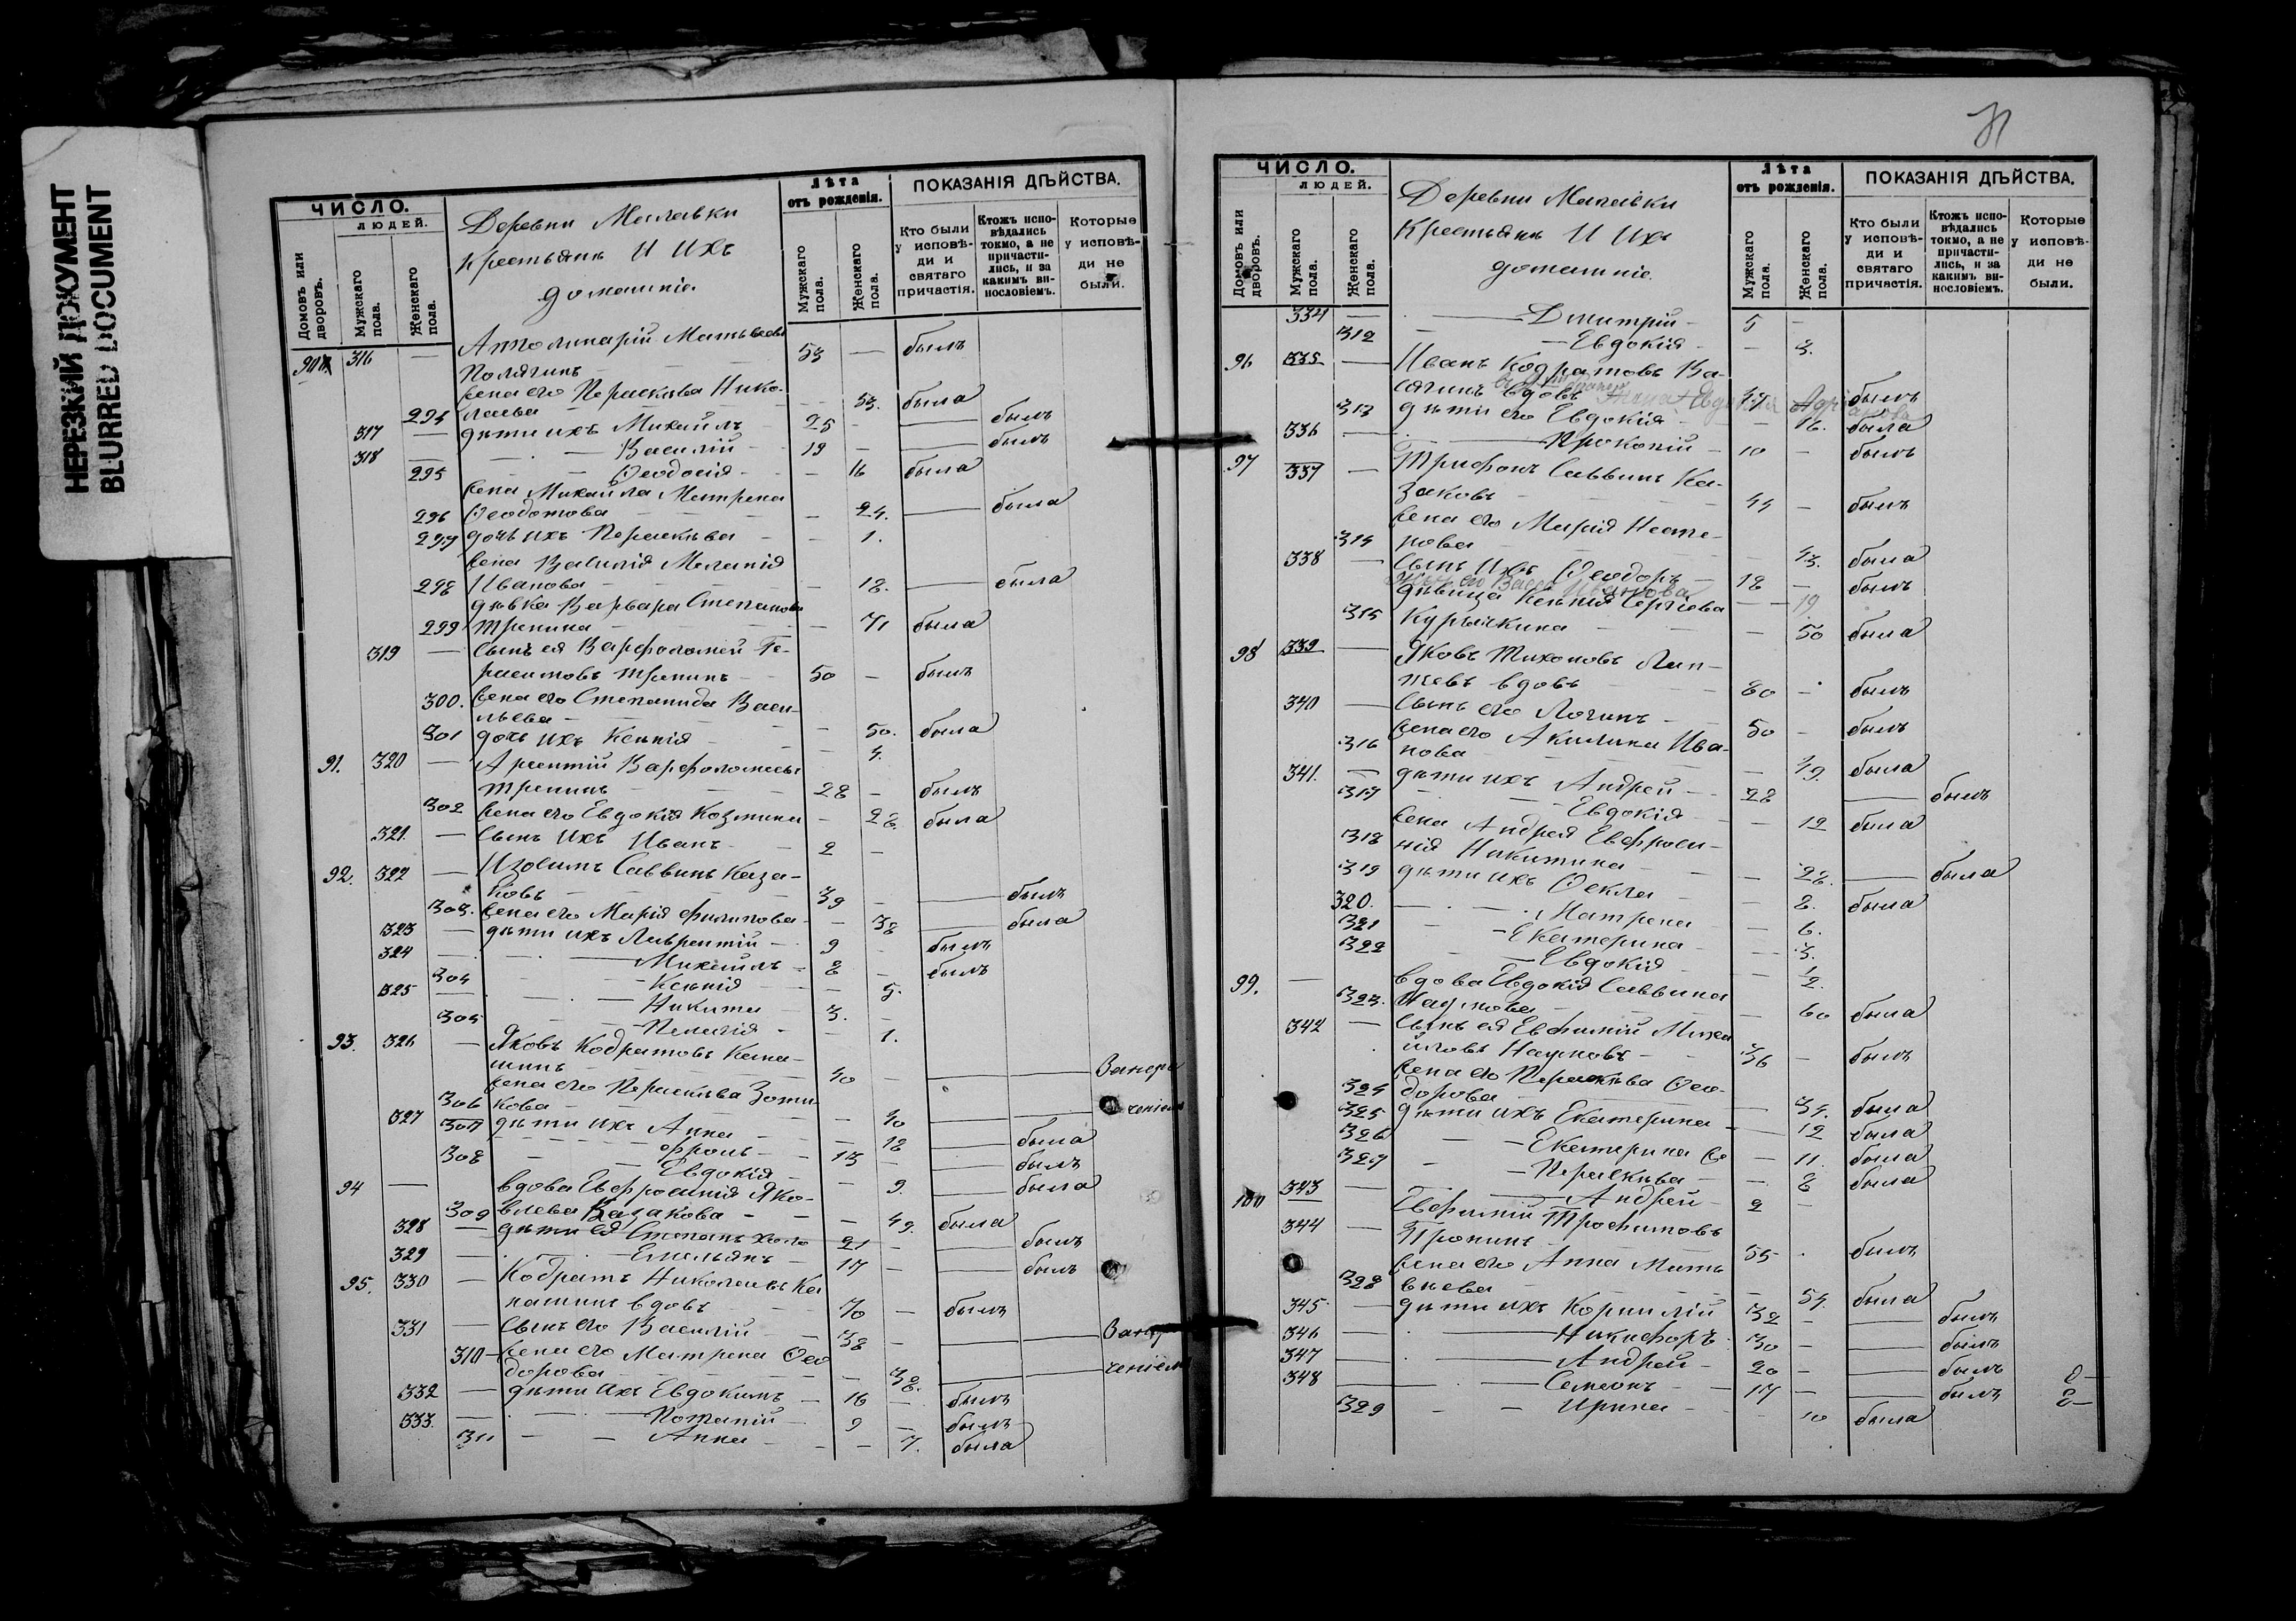 НЕРЕЗКИЙ ДОКУМЕНТ
BLURRED DOCUMENT
ЧИСЛО.
ЛЮДЕЙ.
Домовъ или дворовъ.
Мужскаго пола.
Женскаго пола.
Деревни
крестьянъ и ихъ
домашніе.
лѣта отъ рожденія.
Мужскаго пола.
Женскаго пола.
ПОКАЗАНІЯ ДѢЙСТВА.
Кто были у исповѣди и святаго причастія.
Ктожъ исповѣдались токмо, а не причастились, и за какимъ виновіемъ.
Которые у исповѣди не были.
90 316 — Апполинарій Матвѣевъ
53 — былъ
жена его Параскева Нико-
294 лаева — 53. была
317 — дѣти ихъ Михаилъ 25 — былъ
318 — Василій 19 — былъ
295 Ѳеодосія — 16 была
жена Михаила Матрена
296 Ѳеодотова — 24. — была
297 дочь ихъ Параскева — 1.
жена Василія Меланія
298 Иванова — 18. — была
дѣвка Варвара Степанова
299 Тренина — 71 была
319 — сынъ ея Варфоломей Ге-
расимовъ Тренинъ 50 — былъ
300. жена его Степанида Васи-
льева — 50. была
301 дочь ихъ Ксенія — 4.
91. 320 — Арсентій Варфоломеевъ
Тренинъ 28 — былъ
302 жена его Евдокія Козмина — 28. была
321. — сынъ ихъ Иванъ 2 —
92. 322 — Изосимъ Саввинъ Каза-
ковъ 39 — былъ
303. жена его Марія Филипова — 38 — была
323 — дѣти ихъ Лаврентій 9 — былъ
324 — Михаилъ 8 — былъ
304 Ксенія — 5.
325 — Никита 3. —
305 Пелагія — 1.
93. 326 — Яковъ Кодратовъ Кана-
шинъ 40 —
жена его Параскева Зоти-
306 кова — 40
307 дѣти ихъ Анна — 18 — была
327 Фролъ 13 — былъ
308 Евдокія — 9. — была
94 — вдова Евфросинія Яко-
309 влева Казакова — 49. была
328 — дѣти ея Степанъ 21 — былъ
329 — Емельянъ 17 — былъ
95. 330 — Кодратъ Николаевъ Ка
нашинъ вдовъ 70 — былъ
331 — сынъ его Василій 38 —
310 жена его Матрена Ѳео
дорова — 38.
332 — дѣти ихъ Евдокимъ 16 — былъ
333. — Потапій 9 — былъ
311 — Анна — 7. была
31
ЧИСЛО.
ЛЮДЕЙ.
Домовъ или дворовъ.
Мужскаго пола.
Женскаго пола.
Деревни
Крестьянъ и ихъ
домашніе.
лѣта отъ рожденія.
Мужскаго пола.
Женскаго пола.
ПОКАЗАНІЯ ДѢЙСТВА.
Кто были у исповѣди и святаго причастія.
Ктожъ исповѣдались токмо, а не причастились, и за какимъ виновіемъ.
Которые у исповѣди не были.
334 — Дмитрій 5 —
312 — Евдокія — 3.
96 335 — Иванъ Кодратовъ
вдовъ былъ
313 дѣти его Евдокія — 16. была
336 — Прокопій 10 — былъ
97 337 — Трифонъ Саввинъ Ка-
заковъ 44 — былъ
жена его Марія Несте-
314 рова 43. была
338 — сынъ ихъ Ѳеодоръ 18 — былъ
жена его Васса Иванова — 19
дѣвица Ксенія Сергіева
315 Курычкина — 50 была
98 339 — Яковъ Тихоновъ Лап-
тевъ вдовъ 80 — былъ
340 — сынъ его Логинъ 50 — былъ
жена его Акилина Ива-
316 нова — 49. была
341. — дѣти ихъ Андрей 28 — былъ
317 Евдокія — 12 была
жена Андрея Евфроси-
318 нія Никитина — 28. — была
319 дѣти ихъ Ѳекла — 8. была
320. Матрена — 6.
321 Екатерина — 3.
322 Евдокія — 1/2.
99. — вдова Евдокія Саввина
323. Наумова — 60 была
342 — сынъ ея Евфимій Михай
йловъ Наумовъ 36 — былъ
жена его Параскева Ѳео-
324 дорова — 34. была
325 дѣти ихъ Екатерина — 12 была
326 Екатерина — 11. была
327 Параскева — 8 была
343 — Андрей 2 —
100 344 — Евфимій Трофимовъ
Тронинъ 55 былъ
жена его Анна Мат
328 вѣева — 54. была
345 — дѣти ихъ Корнилій 32 — былъ
346 — Никифоръ 30 — былъ
347 — Андрей 20 — былъ
348 — Семеонъ 17 — былъ
329 — Ирина 10 была